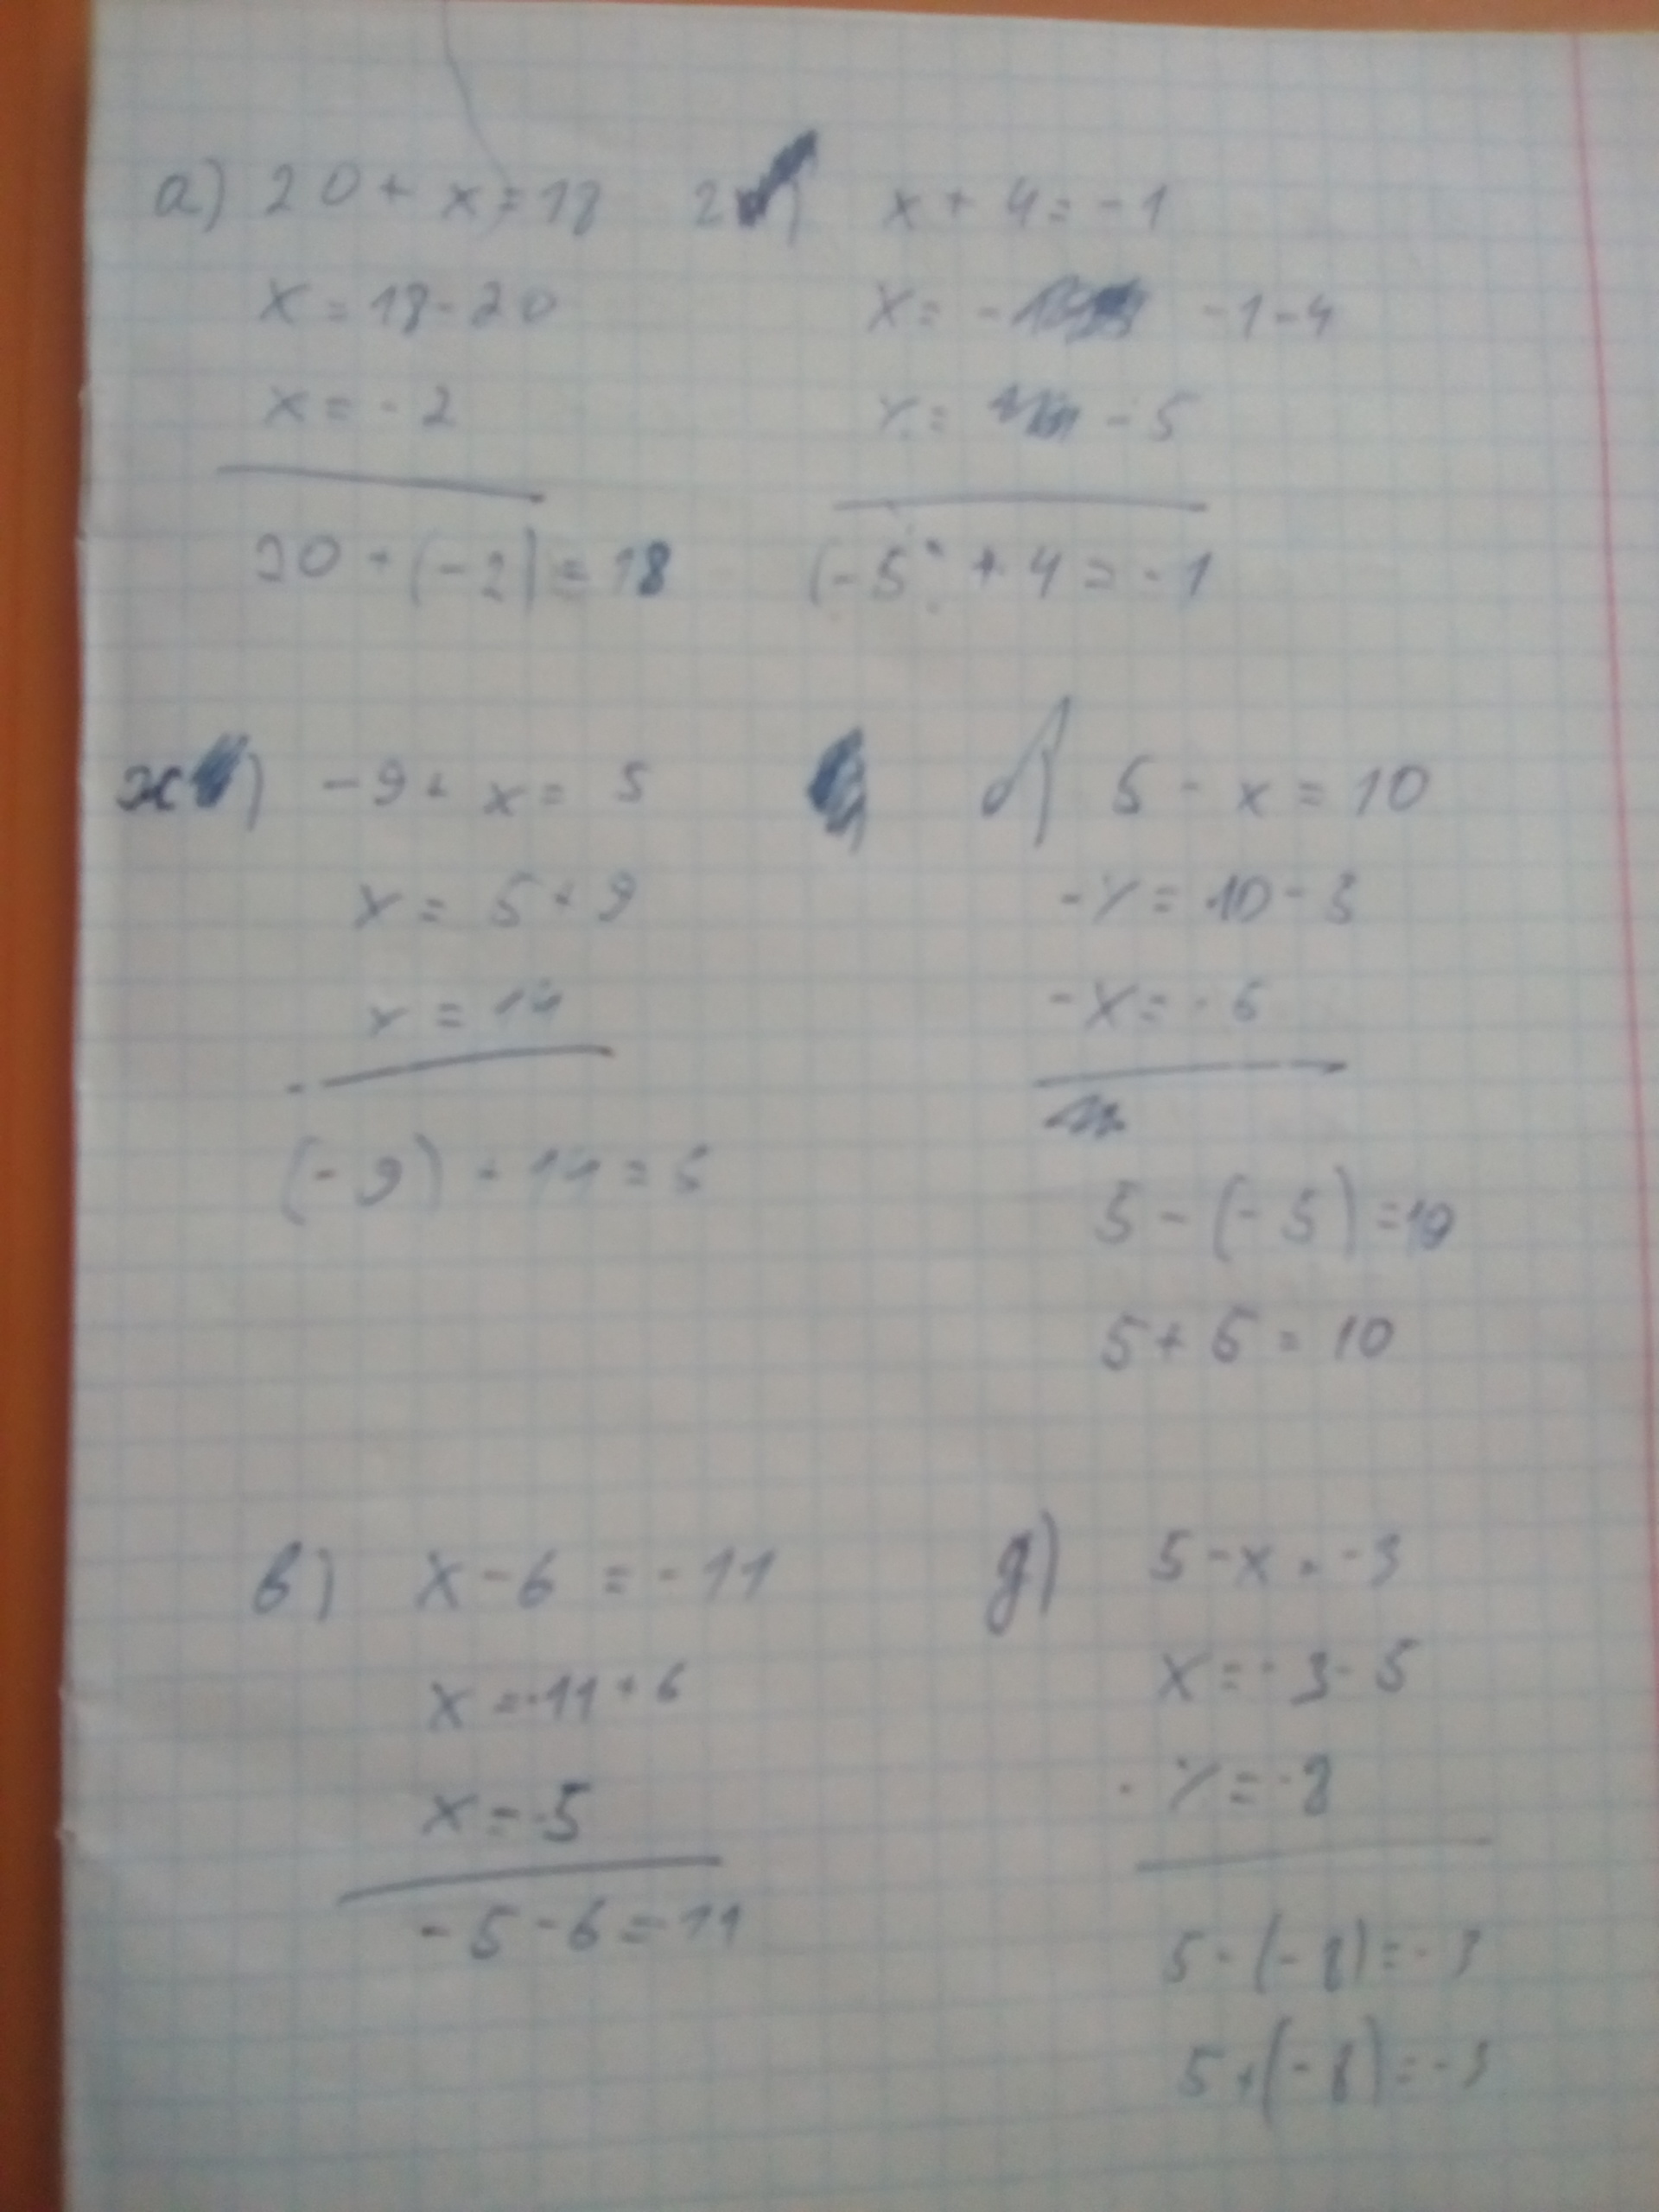 а) 20 + x = 18
x = 18 - 20
x = - 2
20 + (-2) = 18
г) x + 4 = -1
x = - -1-4
x = - 5
(-5) + 4 = -1
ж) -9 + x = 5
x = 5 + 9
x = 14
(-9) + 14 = 5
б) 5 - x = 10
-x = 10 - 5
-x = - 5
5 - (-5) = 10
5 + 5 = 10
в) x - 6 = -11
x = -11 + 6
x = -5
-5 - 6 = -11
д) 5 - x = -3
x = -3 - 5
- x = -8
5 - (-8) = -3
5 + (-8) = -3